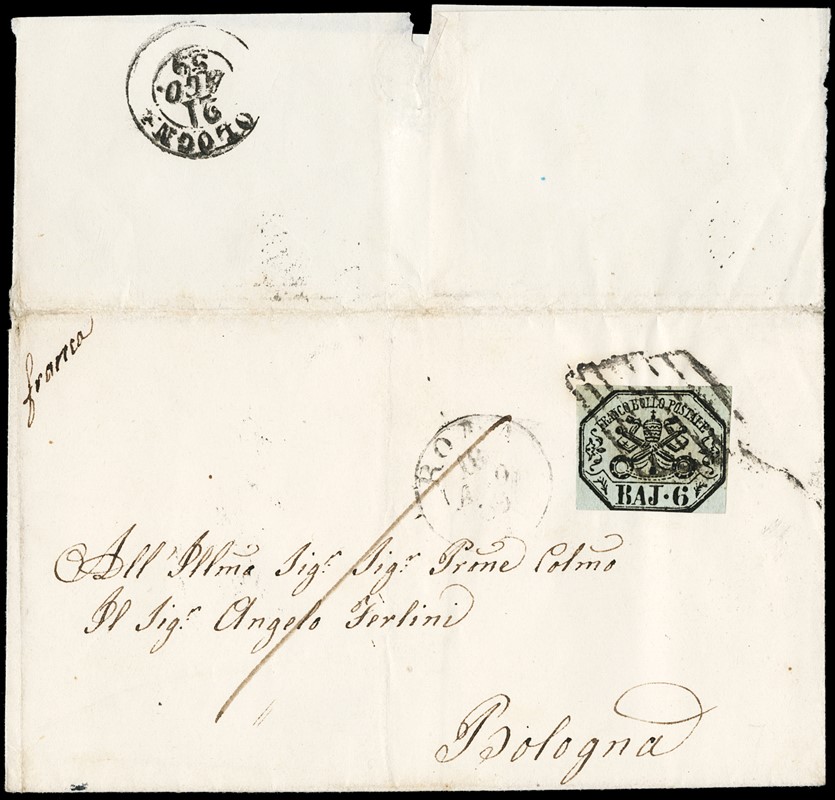 OLOGN
21
AGO.
59
franca
ROMA
FRANCO BOLLO POSTALE
BAJ·6
All' Illmo Sigr Sigr Prone Colmo
Il Sigr Angelo Ferlini
Bologna